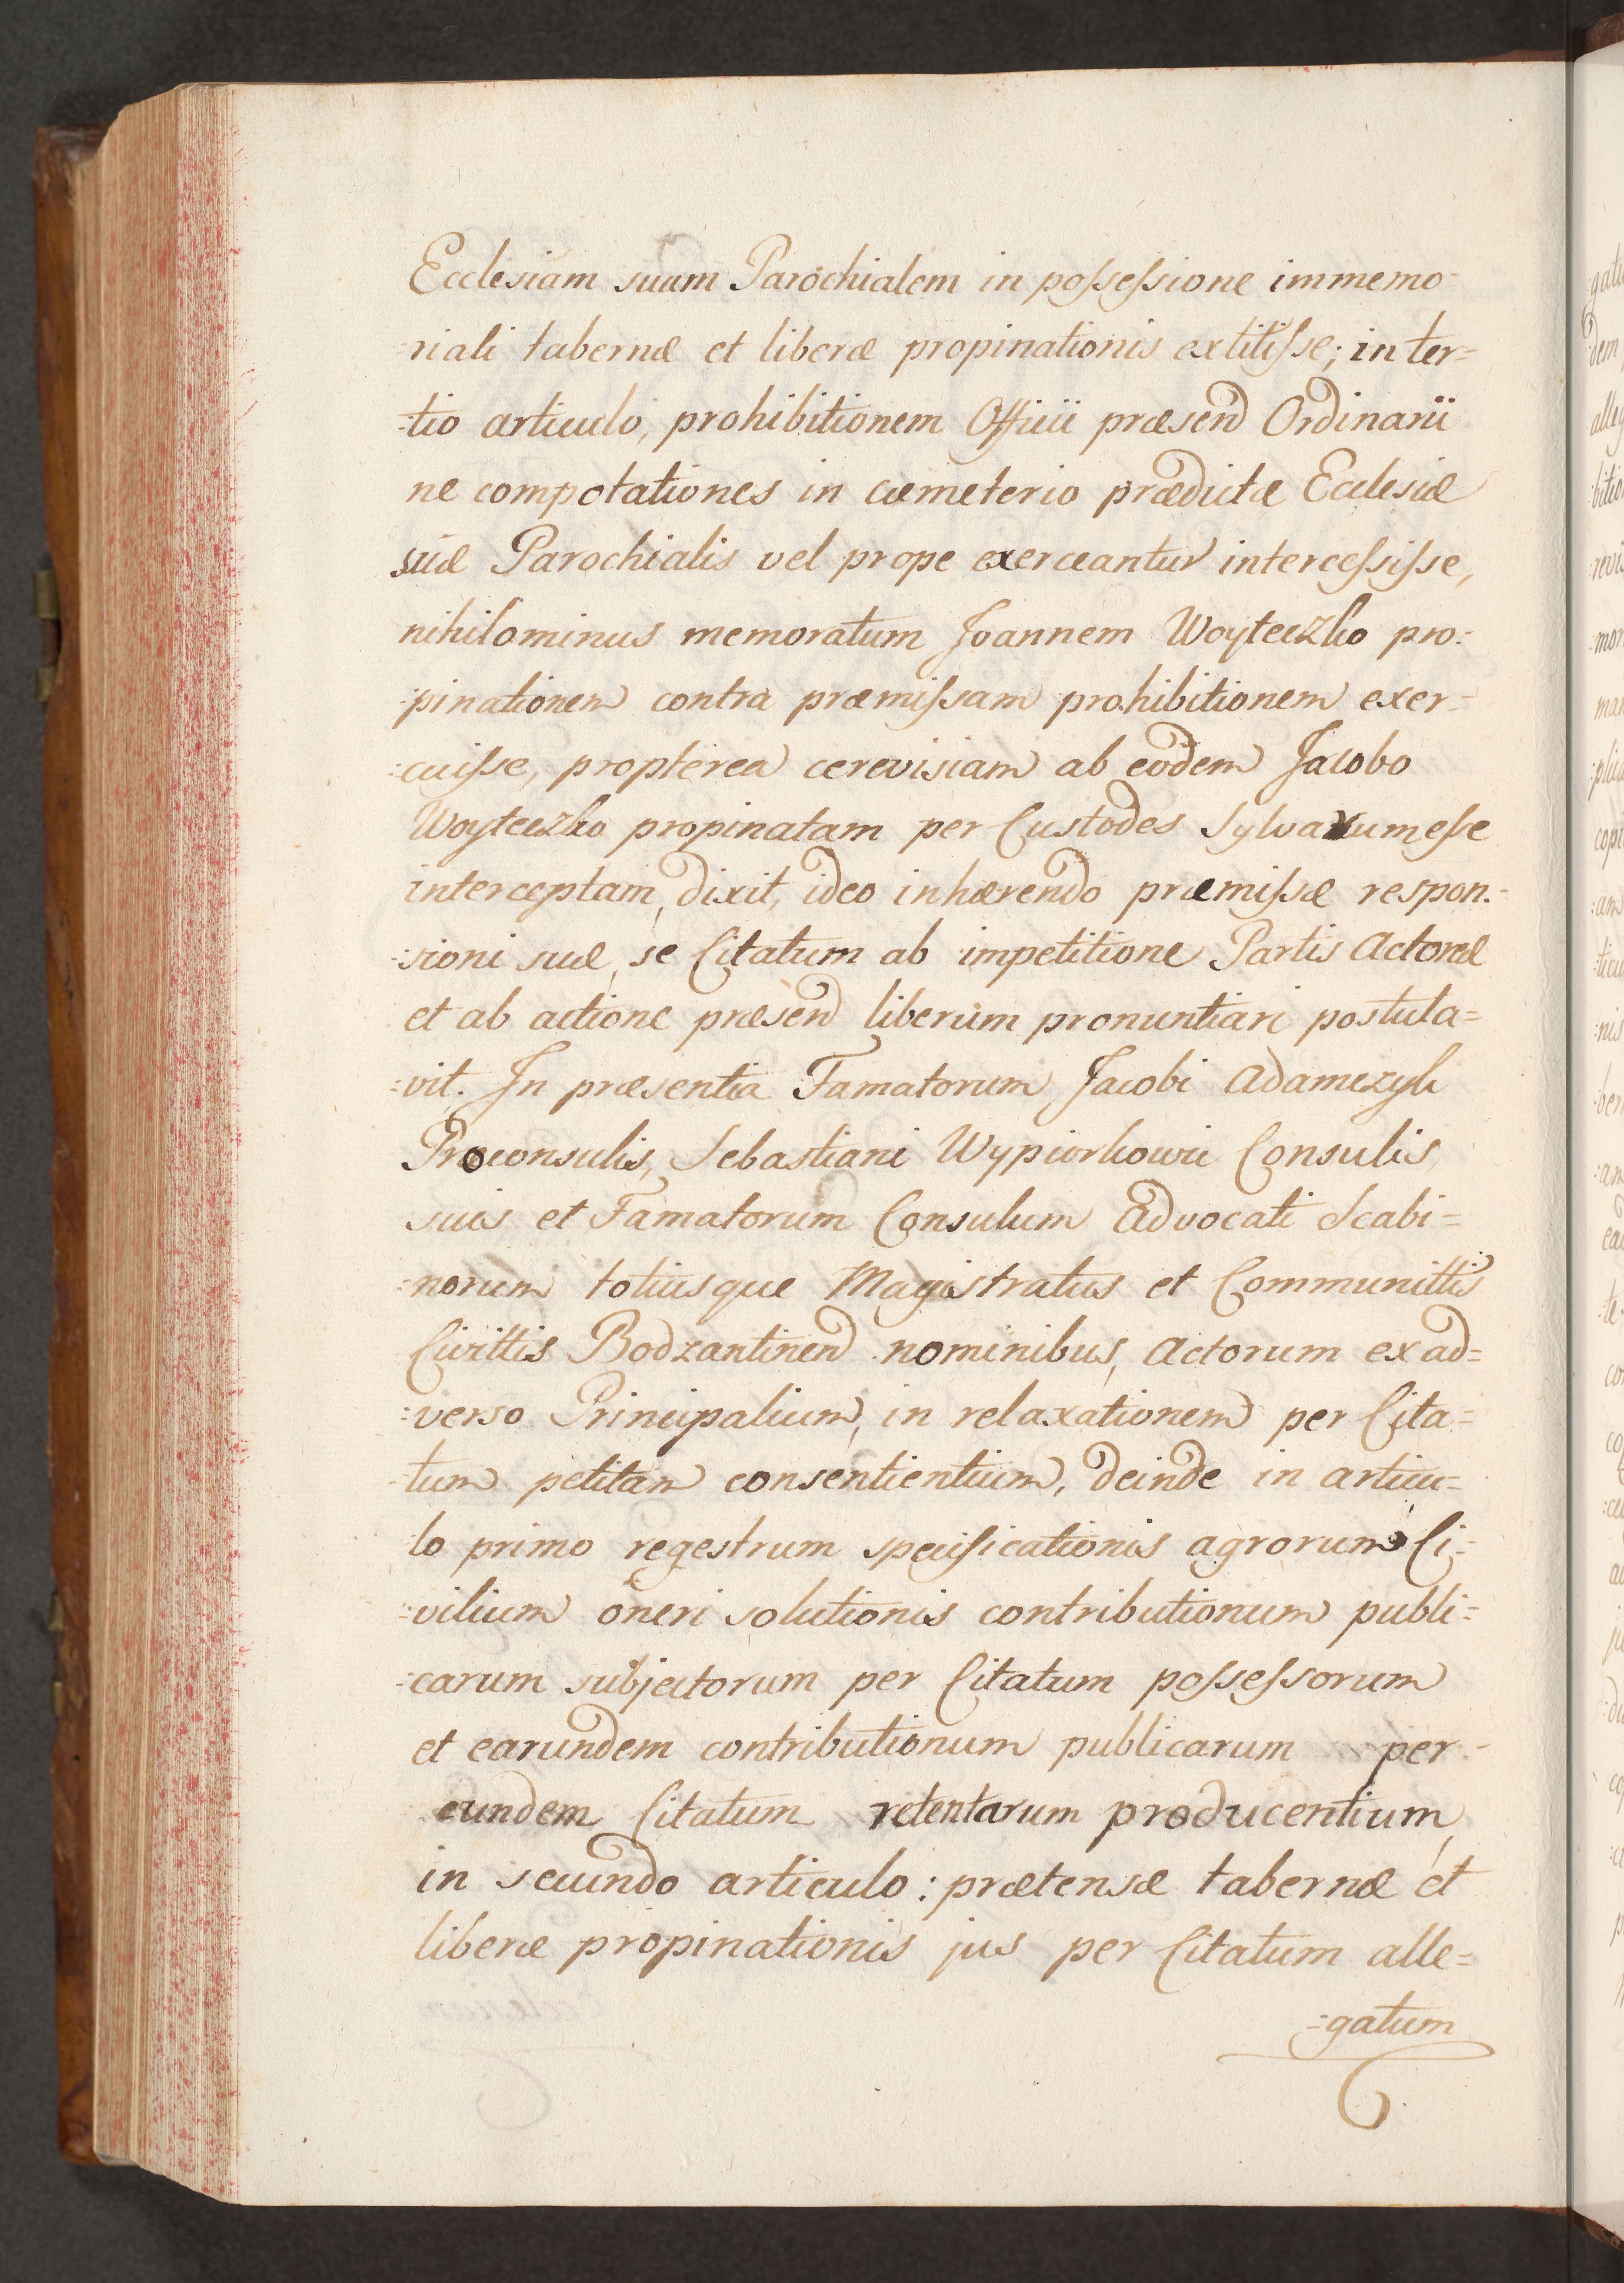 Ecclesiam suam Parochialem in possessione immemo=
=riali tabernæ et liberæ propinationis extitisse; in ter=
=tio articulo, prohibitionem Officii præsend Ordinarii
ne compotationes in cæmeterio prædictæ Ecclesiæ
suæ Parochialis vel prope exerceantur intercessisse,
nihilominus memoratum Joannem Woyteczko pro=
=pinationem contra præmissam prohibitionem exer=
=cuisse, propterea cerevisiam ab eodem Jacobo
Woyteczko propinatam per Custodes Sylvarum esse
interceptam, dixit, ideo inhærendo præmissæ respon=
=sioni suæ, se Citatum ab impetitione Partis Actoreæ
et ab actione præsend liberum pronuntiari postula=
=vit. In præsentia Famatorum Jacobi Adamczyk
Proconsulis, Sebastiani Wypiorkowic Consulis
suis et Famatorum Consulum Advocati Scabi=
=norum totiusque Magistratus et Communittis
Civittis Bodzantinend nominibus, Actorum ex ad=
=verso Principalium, in relaxationem per Cita=
=tum petitam consentientium, deinde in articu=
=lo primo regestrum specificationis agrorum Ci=
=vilium oneri solutionis contributionum publi=
=carum subjectorum per Citatum possessorum
et earundem contributionum publicarum per
eundem Citatum retentarum producentium,
in secundo articulo: prætensæ tabernæ et
liberæ propinationis jus per Citatum alle=
=gatum